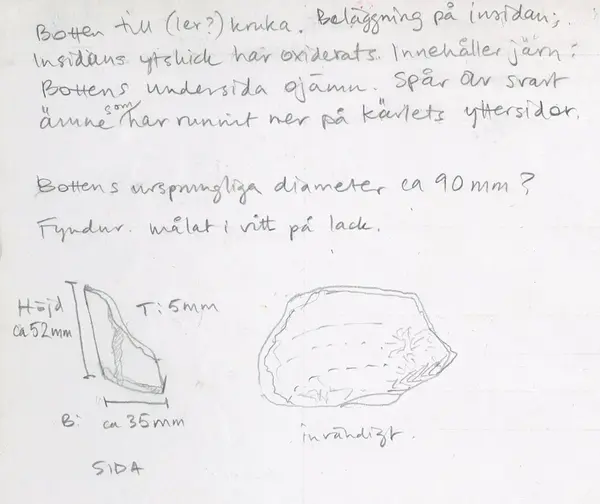 Botten till (ler?) kruka. Beläggning på insidan;
Insidans ytskick har oxiderats. Innehåller järn?
Bottens undersida ojämn. Spår av svart
ämne som har runnit ner på kärlets yttersidor.
Bottens ursprungliga diameter ca 90 mm?
Fyndnr. målat i vitt på lack.
Höjd
ca 52mm
T: 5mm
B: ca 35mm
SIDA
invändigt.